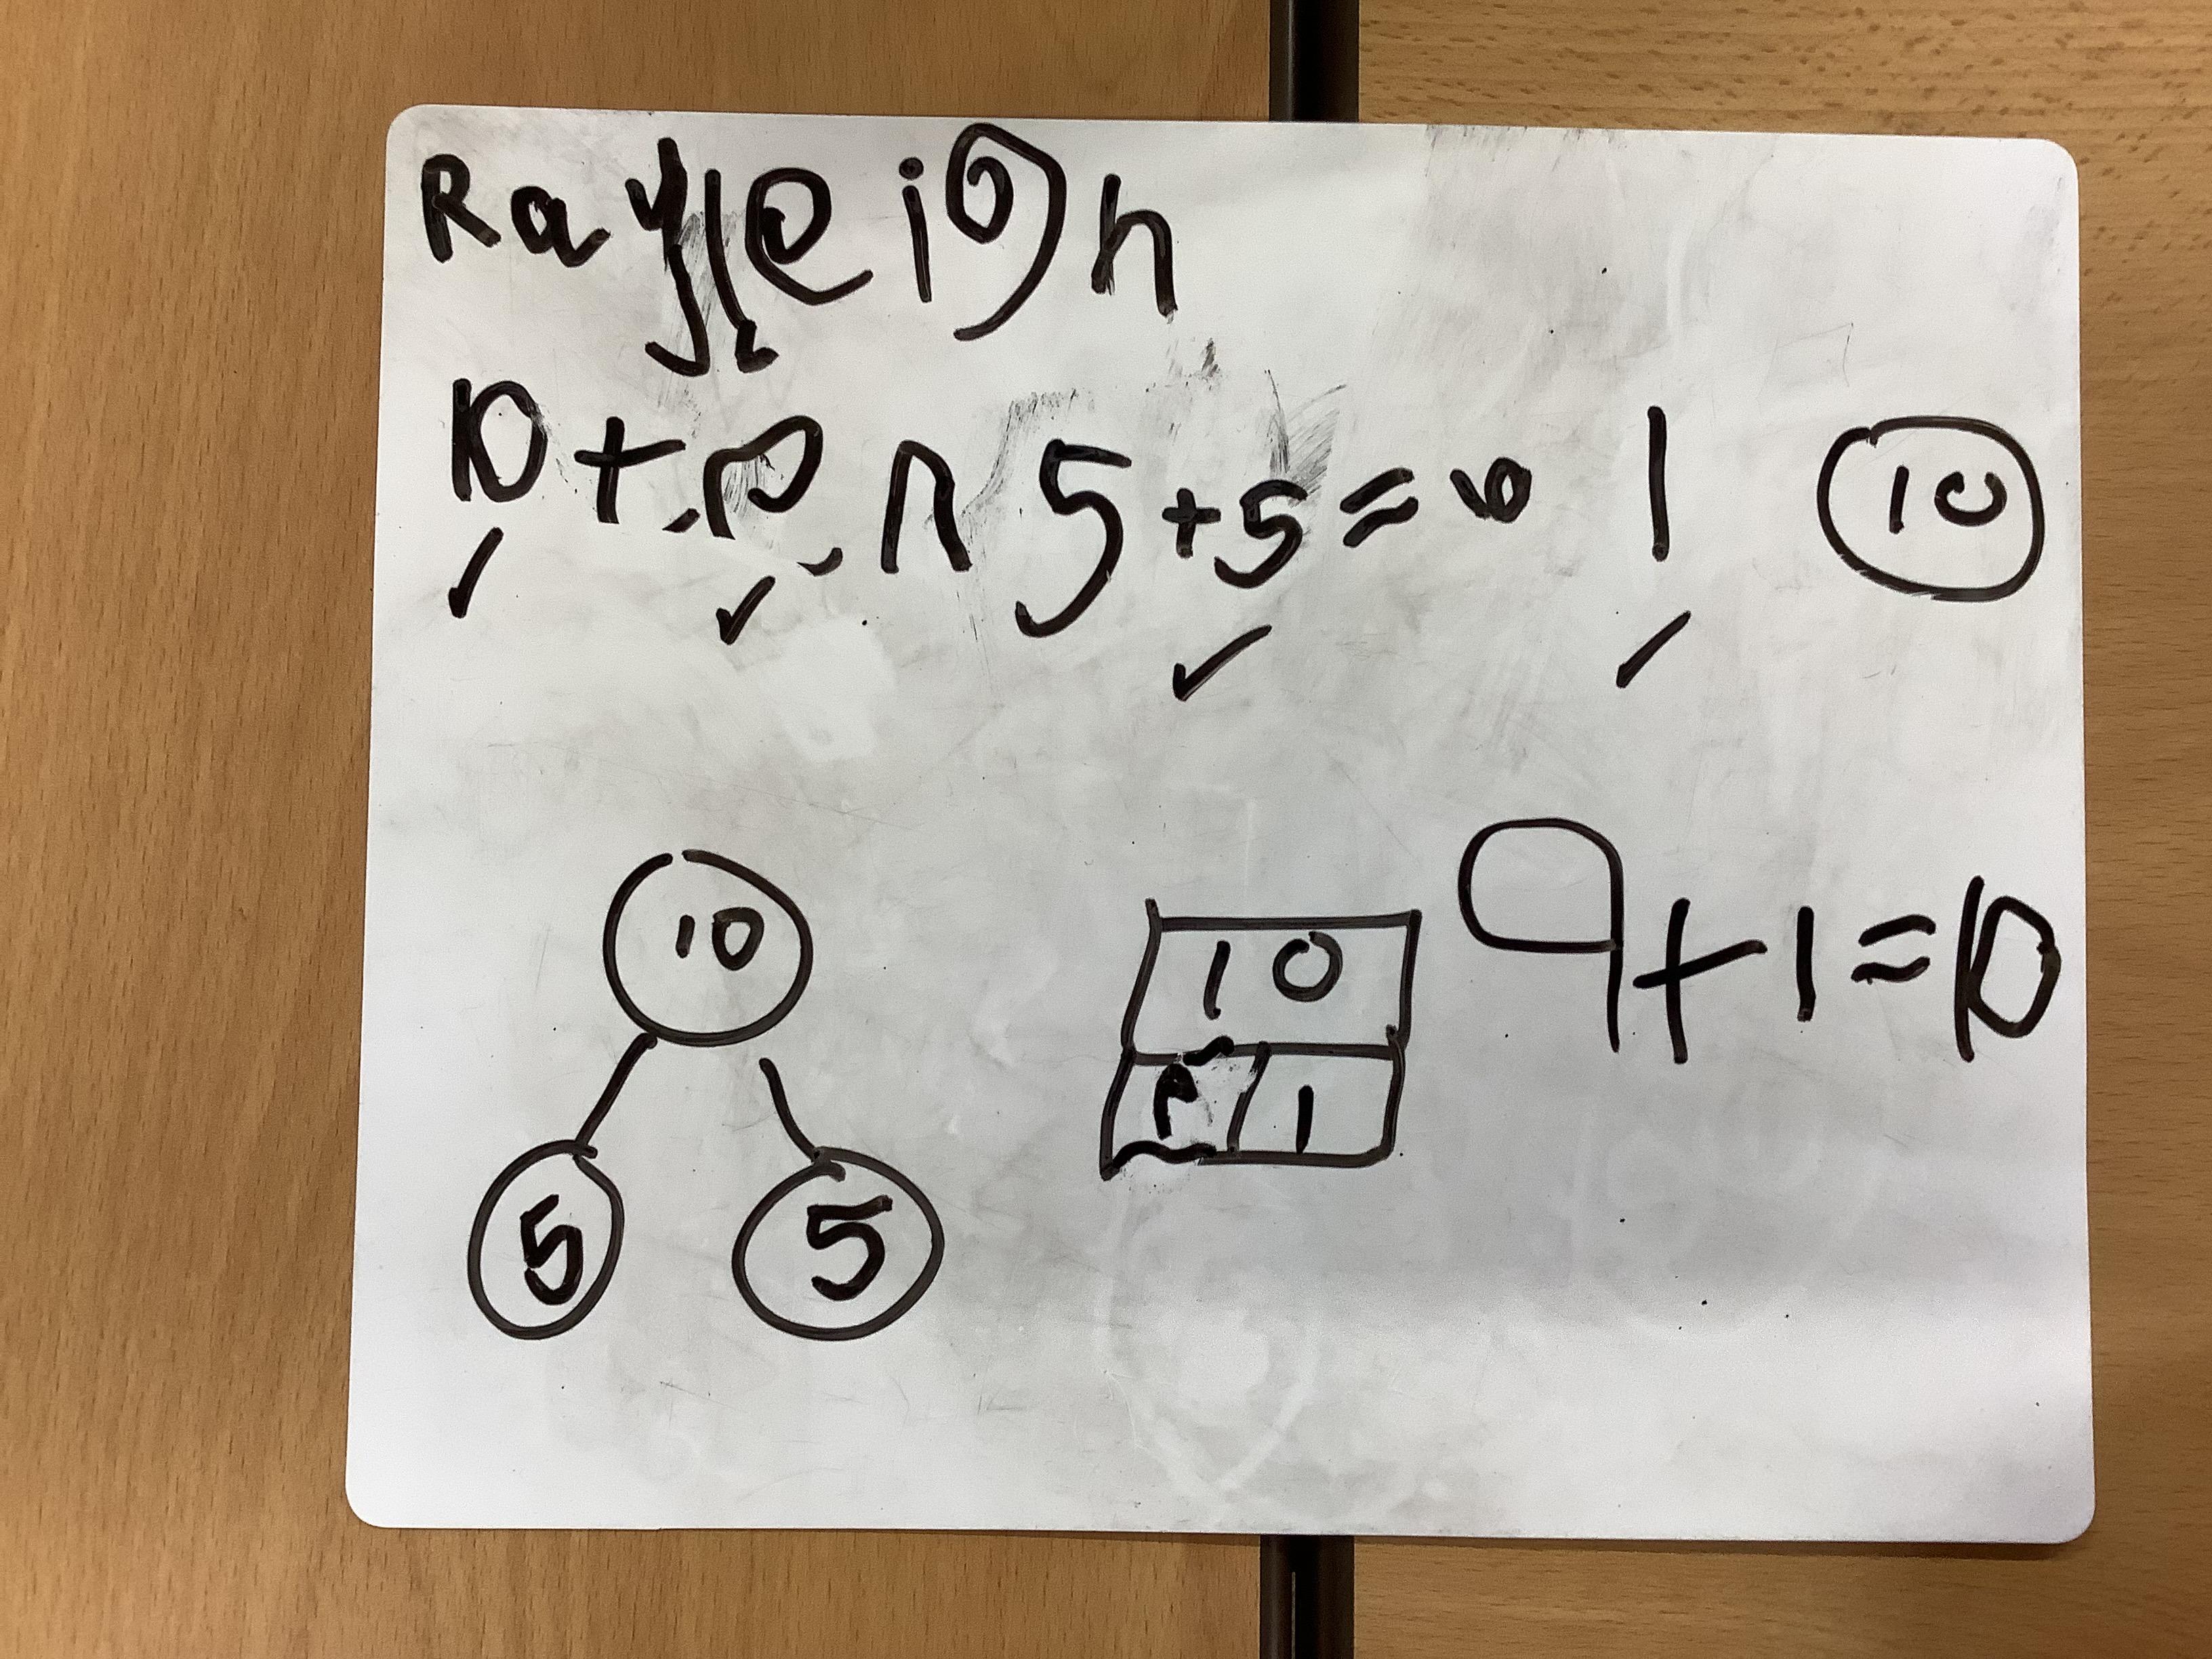 Rayleigh
10 + n 5 + 5 = 10 1 10
10 10 9 + 1 = 10
9 1
5 5